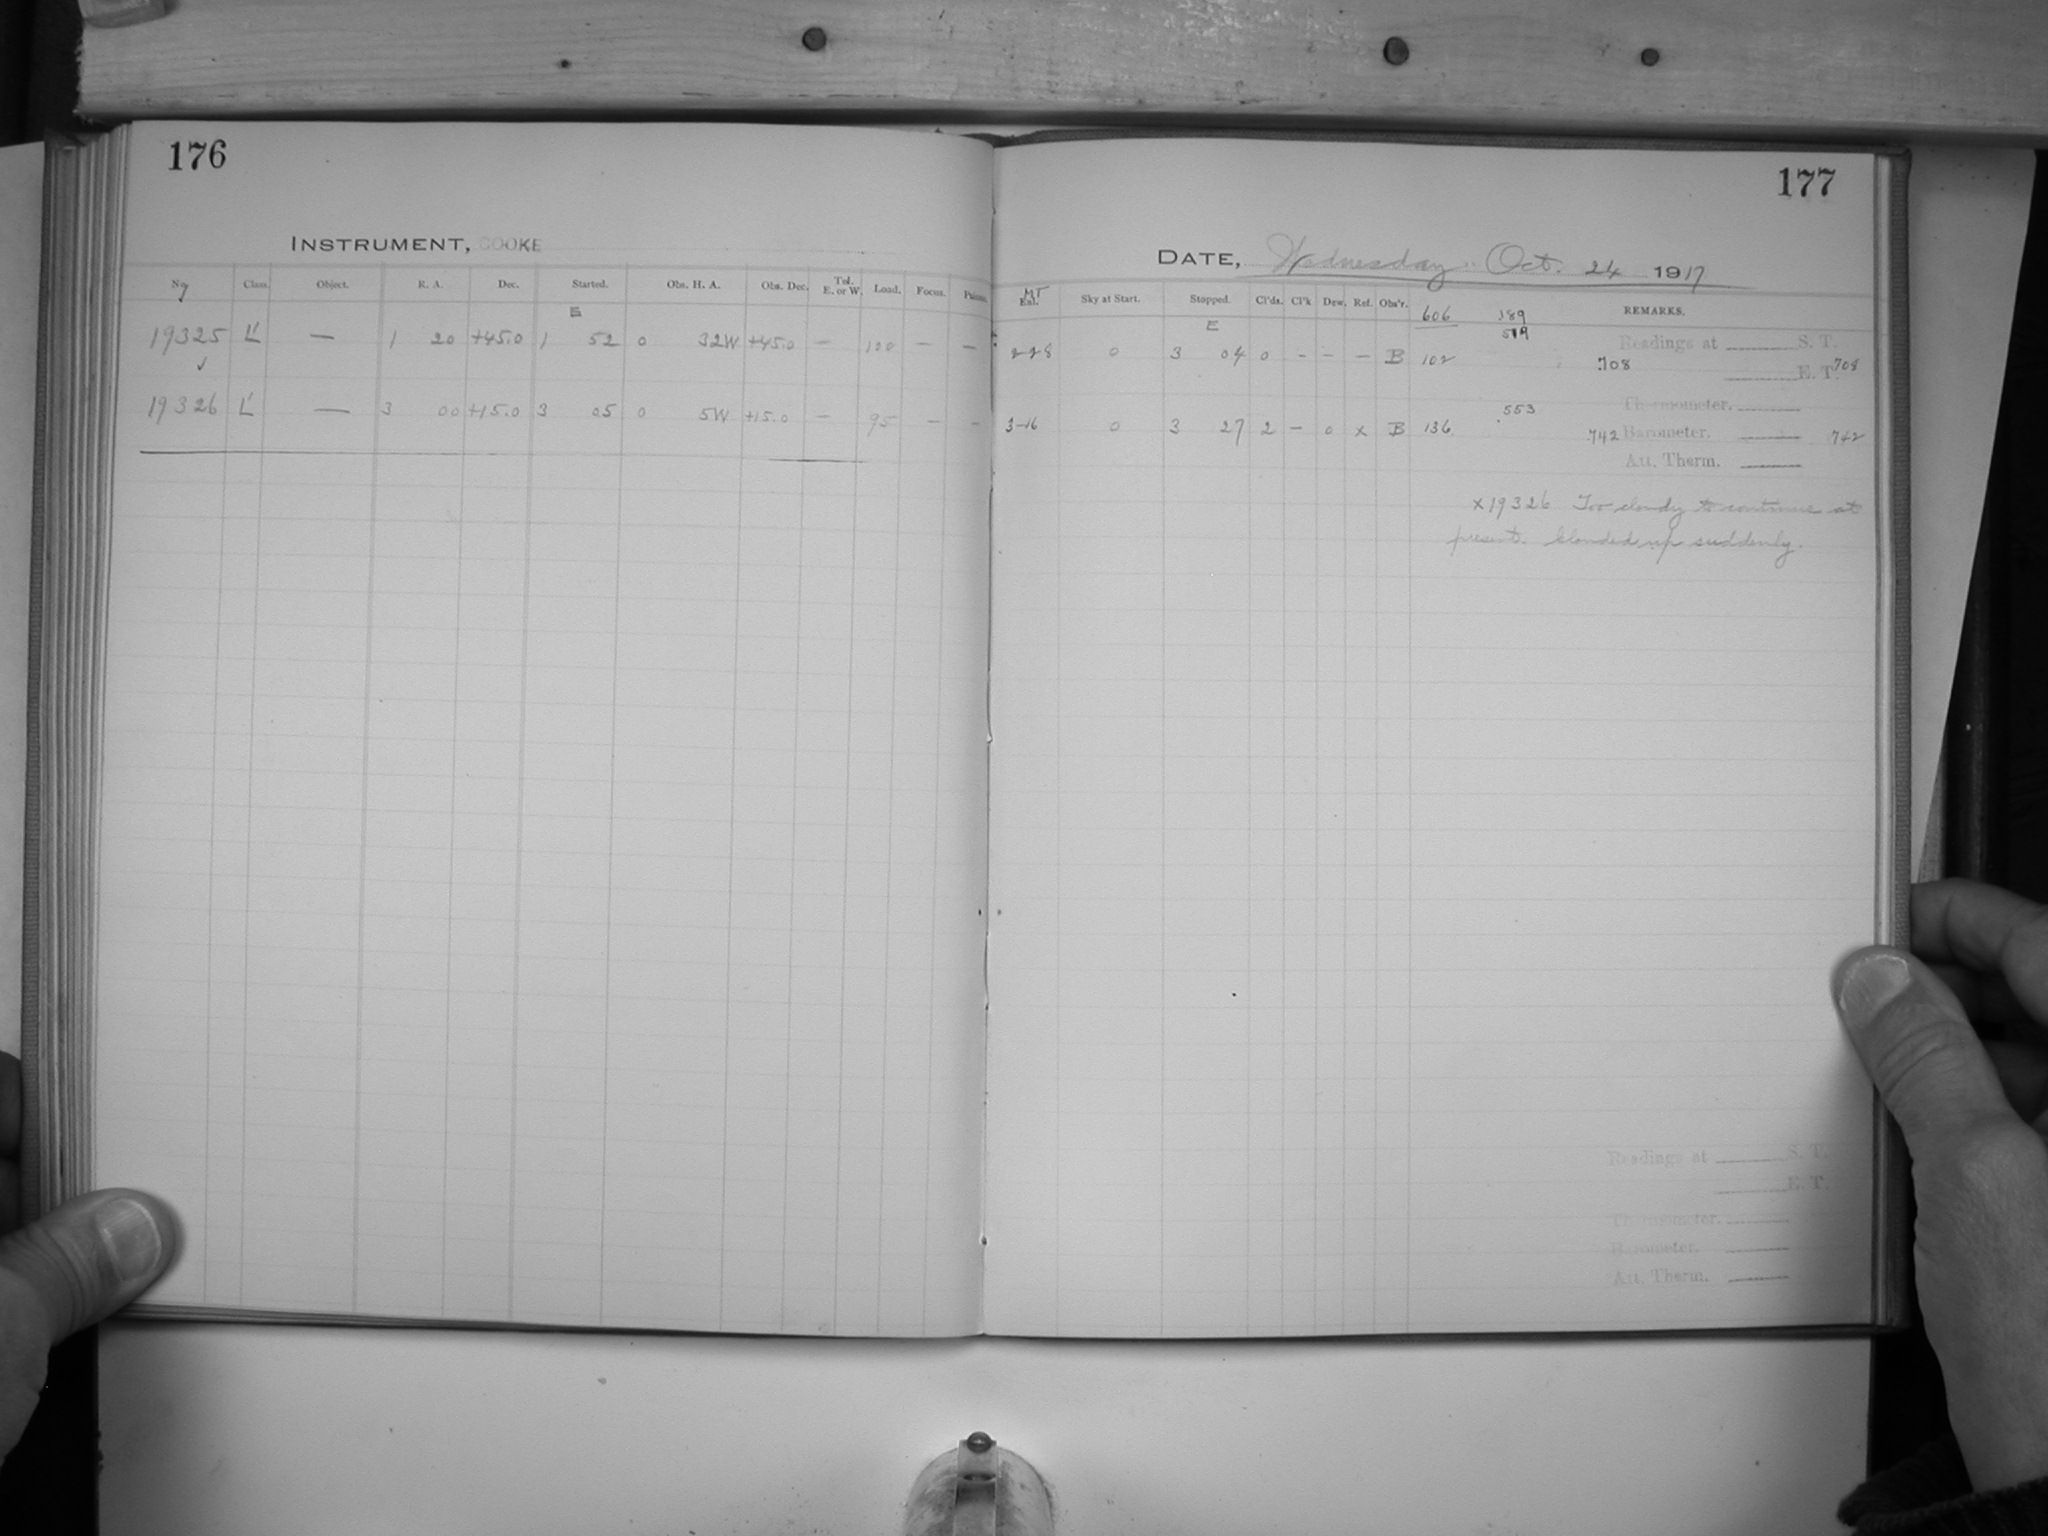 176
INSTRUMENT, COOKE
No Class. Object. R. A. Dec. Started. Obs. H. A. Obs. Dec. Tel. E. or W. Load. Focus.
E
19325 L' — 1 20 +45.0 1 52 0 32W +45.0 — 100 — —
19326 L' — 3 00 +15.0 3 05 0 5W +15.0 — 95 — —
177
DATE, Wednesday Oct. 24 1917
MT
Sky at Start. Stopped. Cl'ds. Cl'k Dew. Ref. Obs'r. 606 189 REMARKS.
E 519
2-28 0 3 04 0 - - - B 102 Readings at S. T.
.708 E. T. 708
553 Thermometer.
3-16 0 3 27 2 - 0 x B 136 .742 Barometer. 742
Att. Therm.
x19326 Too cloudy to continue at
present. Clouded up suddenly.
Readings at S. T.
E. T.
Thermometer.
Barometer.
Att. Therm.